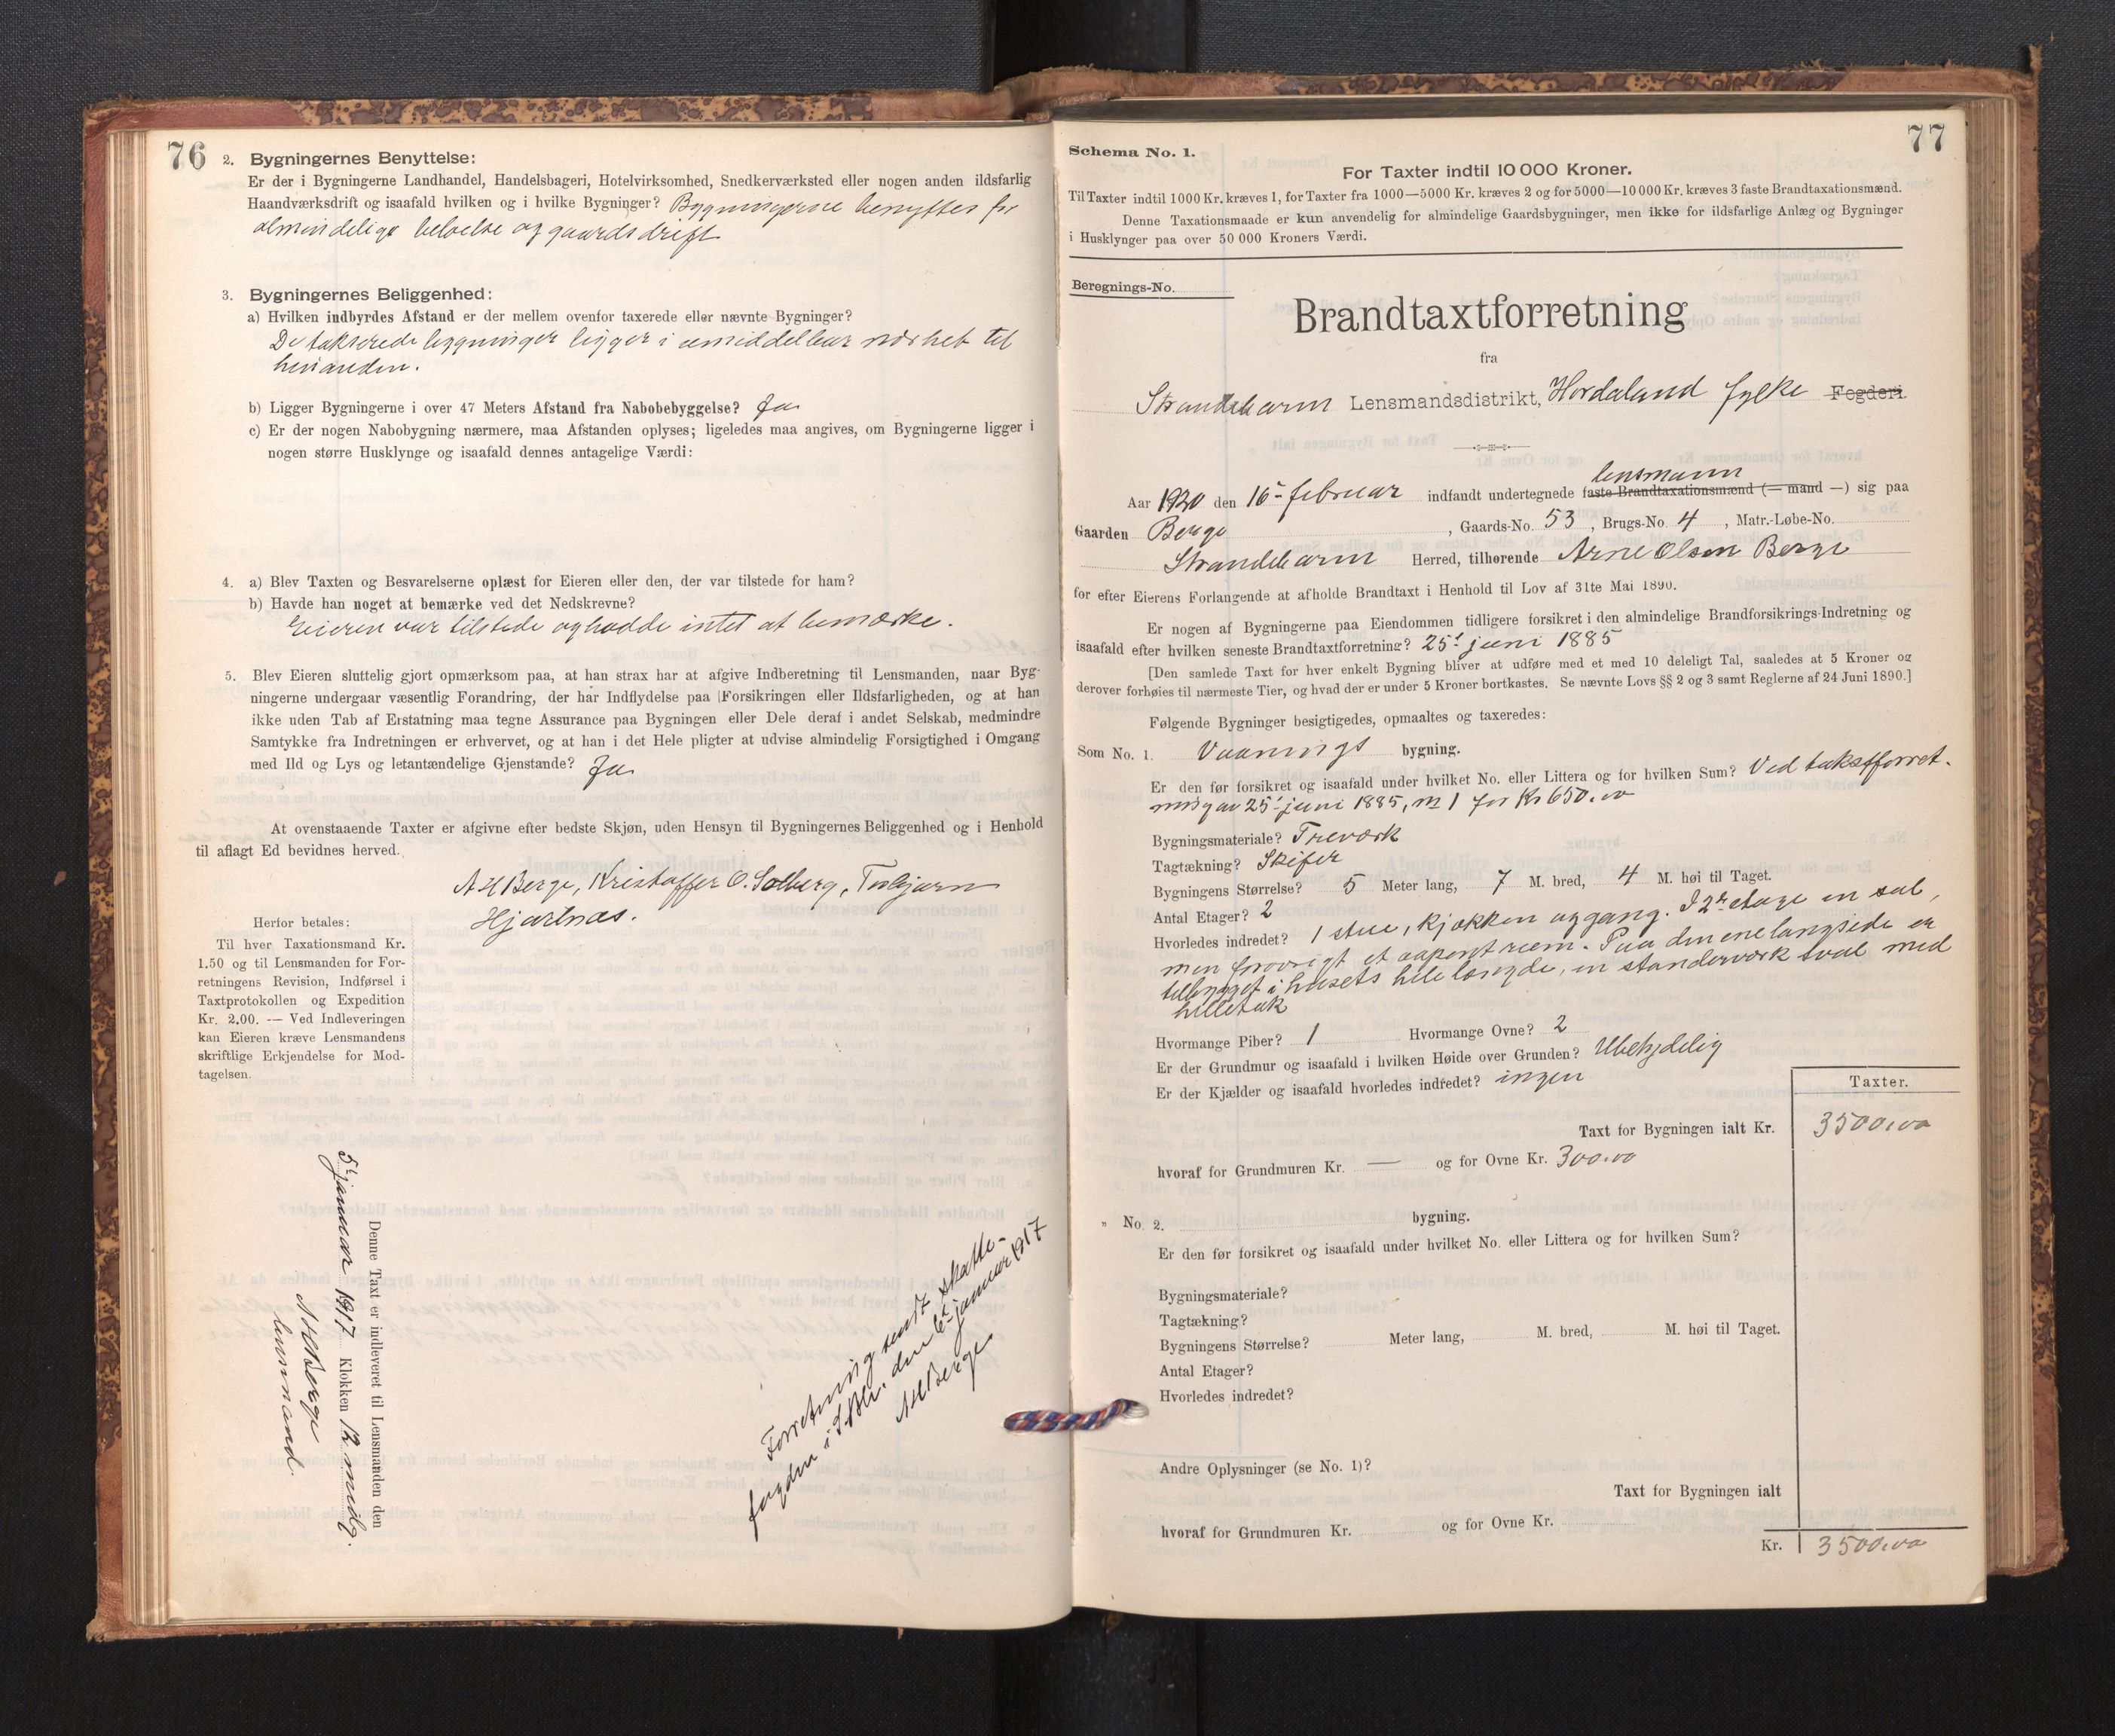 76
2. Bygningernes Benyttelse:
Er der i Bygningerne Landhandel, Handelsbageri, Hotelvirksomhed, Snedkerværksted eller nogen anden ildsfarlig
Haandværksdrift og isaafald hvilken og i hvilke Bygninger? Bygningerne benyttes for
almindelige beboelse og gaardsdrift
3. Bygningernes Beliggenhed:
a) Hvilken indbyrdes Afstand er der mellem ovenfor taxerede eller nævnte Bygninger?
De takserede bygninger ligger i umiddelbar nærhet til
hinanden.
b) Ligger Bygningerne i over 47 Meters Afstand fra Nabobebyggelse? Ja
c) Er der nogen Nabobygning nærmere, maa Afstanden oplyses; ligeledes maa angives, om Bygningerne ligger i
nogen større Husklynge og isaafald dennes antagelige Værdi:
4. a) Blev Taxten og Besvarelserne oplæst for Eieren eller den, der var tilstede for ham?
b) Havde han noget at bemærke ved det Nedskrevne?
Eieren var tilstede og hadde intet at bemærke.
5. Blev Eieren sluttelig gjort opmærksom paa, at han strax har at afgive Indberetning til Lensmanden, naar Byg-
ningerne undergaar væsentlig Forandring, der har Indflydelse paa Forsikringen eller Ildsfarligheden, og at han
ikke uden Tab af Erstatning maa tegne Assurance paa Bygningen eller Dele deraf i andet Selskab, medmindre
Samtykke fra Indretningen er erhvervet, og at han i det Hele pligter at udvise almindelig Forsigtighed i Omgang
med Ild og Lys og letantændelige Gjenstande? Ja
At ovenstaaende Taxter er afgivne efter bedste Skjøn, uden Hensyn til Bygningernes Beliggenhed og i Henhold
til aflagt Ed bevidnes herved.
A H Berge, Kristoffer O. Solberg, Torbjørn
Hjartnæs.
Herfor betales:
Til hver Taxationsmand Kr.
1.50 og til Lensmanden for For-
retningens Revision, Indførsel i
Taxtprotokollen og Expedition
Kr. 2.00. — Ved Indleveringen
kan Eieren kræve Lensmandens
skriftlige Erkjendelse for Mod-
tagelsen.
Denne Taxt er indleveret til Lensmanden den
5t januar 1917 Klokken 12 midg.
A H Berge
lensmand.
Forretning sendt skatte-
fogden i S.Bh. den 6t januar 1917
A H Berge
77
Schema No. 1.
For Taxter indtil 10 000 Kroner.
Til Taxter indtil 1000 Kr. kræves 1, for Taxter fra 1000—5000 Kr. kræves 2 og for 5000—10 000 Kr. kræves 3 faste Brandtaxationsmænd.
Denne Taxationsmaade er kun anvendelig for almindelige Gaardsbygninger, men ikke for ildsfarlige Anlæg og Bygninger
i Husklynger paa over 50 000 Kroners Værdi.
Beregnings-No.
Brandtaxtforretning
fra
Strandebarm Lensmandsdistrikt, Hordaland fylke Fogderi.
lensmann
Aar 1920 den 16- februar indfandt undertegnede faste Brandtaxationsmænd (— mand —) sig paa
Gaarden Berge, Gaards-No. 53, Brugs-No. 4, Matr.-Løbe-No.
Strandebarm Herred, tilhørende Arne Olsen Berge
for efter Eierens Forlangende at afholde Brandtaxt i Henhold til Lov af 31te Mai 1890.
Er nogen af Bygningerne paa Eiendommen tidligere forsikret i den almindelige Brandforsikrings-Indretning og
isaafald efter hvilken seneste Brandtaxtforretning? 25t juni 1885
[Den samlede Taxt for hver enkelt Bygning bliver at udføre med et med 10 deleligt Tal, saaledes at 5 Kroner og
derover forhøies til nærmeste Tier, og hvad der er under 5 Kroner bortkastes. Se nævnte Lovs §§ 2 og 3 samt Reglerne af 24 Juni 1890.]
Følgende Bygninger besigtigedes, opmaaltes og taxeredes:
Som No. 1. Vaanings bygning.
Er den før forsikret og isaafald under hvilket No. eller Littera og for hvilken Sum? Ved takstforret-
ning av 25t juni 1885, nr 1 for Kr 650.00
Bygningsmateriale? Træverk
Tagtækning? Skifer
Bygningens Størrelse? 5 Meter lang, 7 M. bred, 4 M. høi til Taget.
Antal Etager? 2
Hvorledes indredet? 1 stue, kjøkken og gang. I 2n etage en sal,
men forøvrigt et aapent rum. Paa den ene langside er
tilbygget i husets hele længde, en standerværk sval med
helletak
Hvormange Piber? 1 Hvormange Ovne? 2
Er der Grundmur og isaafald i hvilken Høide over Grunden? Ubetydelig
Er der Kjælder og isaafald hvorledes indredet? ingen
Taxter.
Taxt for Bygningen ialt Kr. 3500.00
hvoraf for Grundmuren Kr. — og for Ovne Kr. 300.00
" No. 2. bygning.
Er den før forsikret og isaafald under hvilket No. eller Littera og for hvilken Sum?
Bygningsmateriale?
Tagtækning?
Bygningens Størrelse? Meter lang, M. bred, M. høi til Taget.
Antal Etager?
Hvorledes indredet?
Andre Oplysninger (se No. 1)?
Taxt for Bygningen ialt
hvoraf for Grundmuren Kr. og for Ovne Kr.
Kr. 3500.00